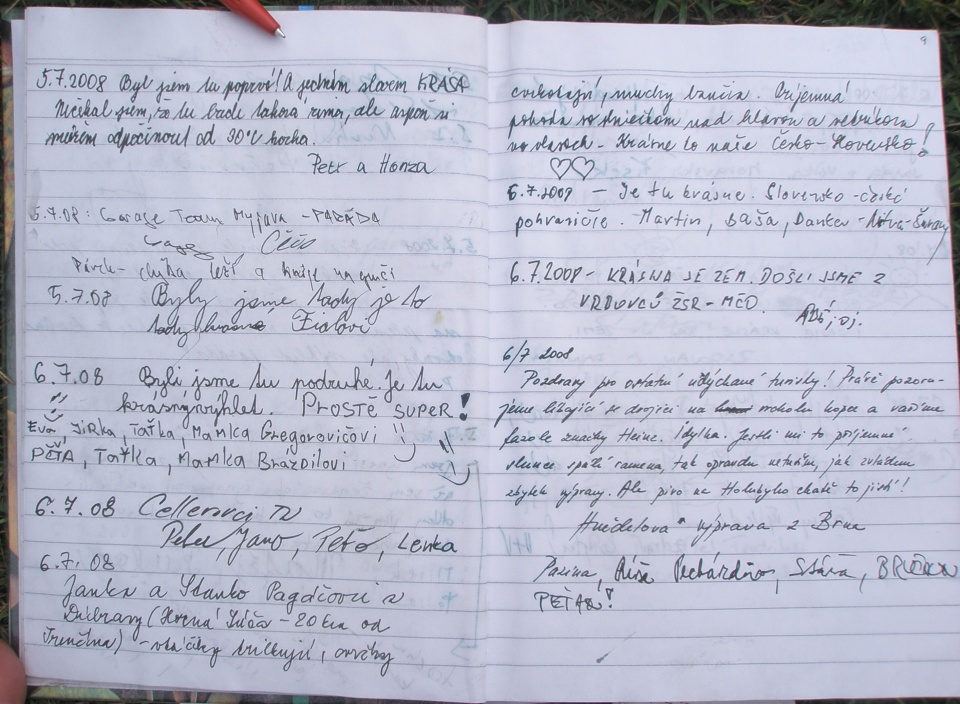 5.7.2008 Byl jsem tu poprvé! A jedním slovem KRÁSA
Nečekal jsem, že tu bude taková zima, ale aspoň si
můžem odpočinout od 30°C horka.
Petr a Honza
5.7.08: Garage Team Myjava - PAŘÁDA
Čéčo
leží a
5.7.08 Byly jsme tady je to
Fialovi
6.7.08 Byli jsme tu podruhé. Je tu
krásný výhled. PROSTĚ SUPER!
Eva, JIRKA, TAŤKA, MAMKA Gregorovičovi
PÉŤA, TAŤKA, MAMKA Brázdilovi
6.7.08 Cellerovci TN
Peter, Jano, Peťo, Lenka
6.7.08
Janka a Stanko Pagáčovci z
Dúbravy (Horná Súča - 20 km od
Trenčína) - vtáčiky štebotajú, ovečky
9
cvikotajú, muchy bzučia. Príjemná
pohoda so slniečkom nad hlavou a vetríkom
vo vlasoch - Krásne to naše Česko-Slovensko!
6.7.2008 - Je tu krásne. Slovensko-české
pohraničie. Martin, Saša, Danka - Nitra-Šurany
6.7.2008 - KRÁSNA JE ZEM. DOŠLI JSME Z
VRBOVCŮ ŽSR - MČD.
6/7 2008
Pozdravy pro ostatní udýchané turisty! Právě pozoru-
jeme lížající se dvojici na vrcholu kopce a vaříme
fazole značky Heinz. Idylka. Jestli mi to příjemné
slunce spálí ramena, tak opravdu netuším, jak zvládnu
zbytek výpravy. Ale pivo na Holubyho chatě to jistí!
výprava z Brna
Pavlína, Stáňa,
PEŤAN!